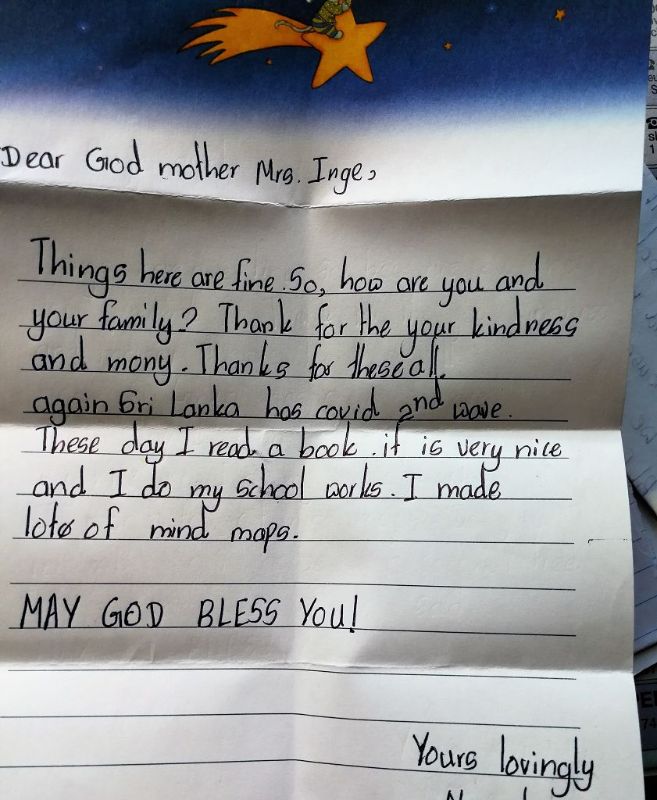 Dear God mother Mrs. Inge,
Things here are fine. So, how are you and
your family? Thank for the your kindness
and mony. Thanks for these all.
again Sri Lanka has covid 2nd wave.
These day I read a book. it is very nice
and I do my school works. I made
lots of mind maps.
MAY GOD BLESS YOU!
Yours lovingly